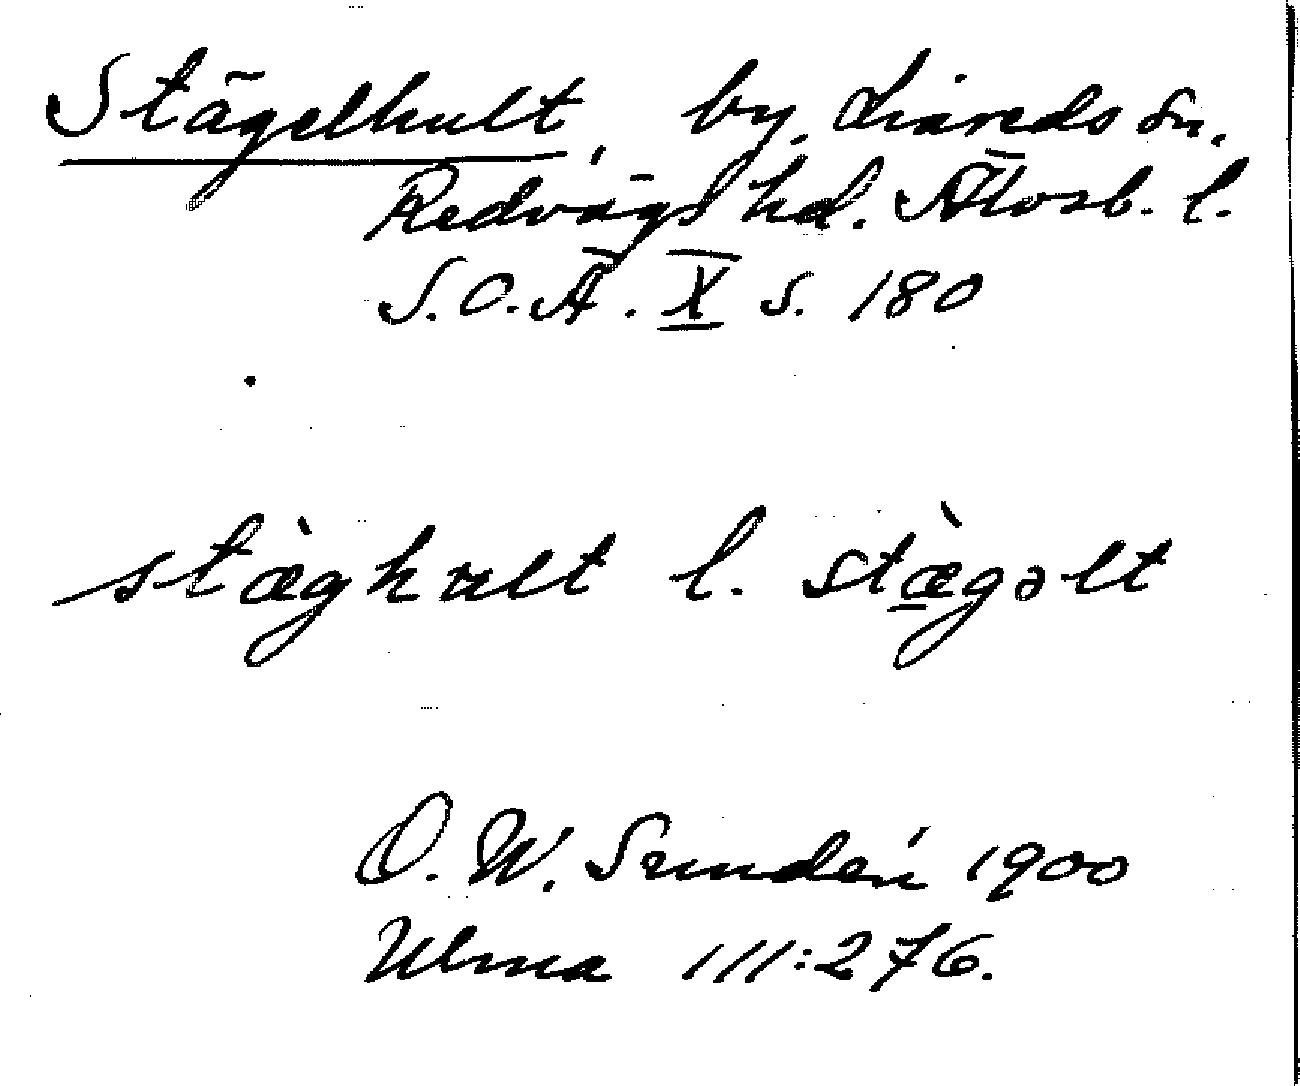 Stägelhult, by, Liareds sn.
Redvägs hd. Älvsb. l.
S.O.Ä. X s. 180
stæ̀ghult l. stæ̀gəlt
O. W. Sundén 1900
Ulma 111:276.